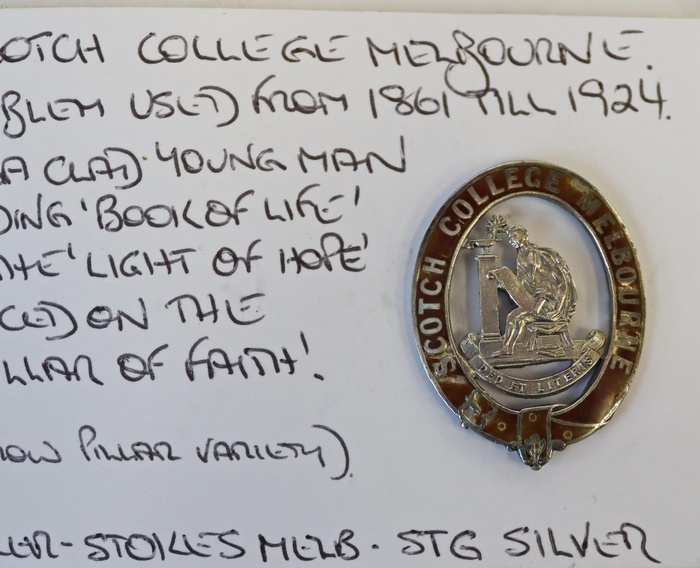 OTCH COLLEGE MELBOURNE.
BLEM USED FROM 1861 TILL 1924.
A CLAD YOUNG MAN
DING 'BOOK OF LIFE'
THE 'LIGHT OF HOPE'
CED ON THE
LLAR OF FAITH'.
OW PILLAR VARIETY)
LER-STOKES MELB - STG SILVER
SCOTCH COLLEGE MELBOURNE
DEO ET LITERIS